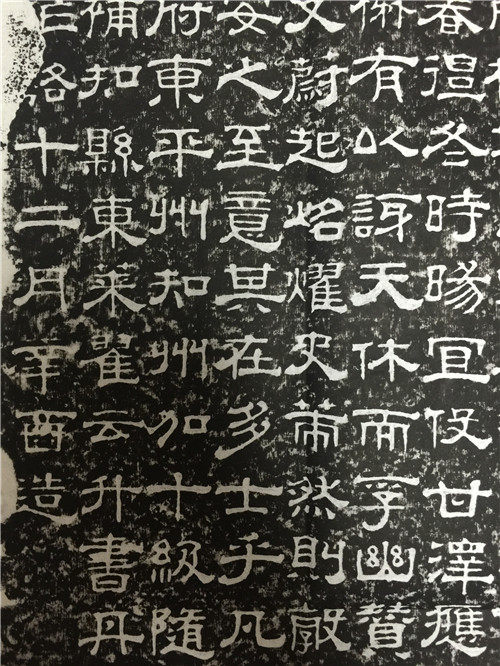 春徂冬時暘宜伇甘澤應
有以訝天休而孚幽贊
文蔚起炤燿史策然則敦
安之至意其在多士乎凡
府東平州知州加十級隨
補知縣東萊翟云升書丹
十二月辛酉造